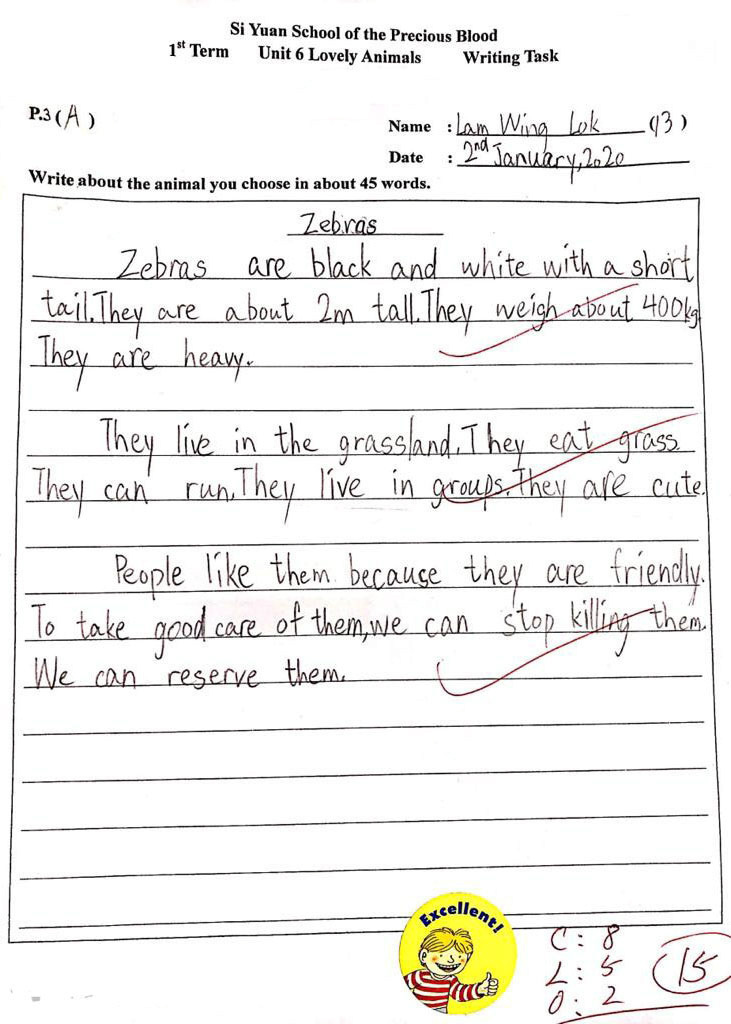 Si Yuan School of the Precious Blood
1st Term Unit 6 Lovely Animals Writing Task
P.3 ( A ) Name : Lam Wing Lok (13)
Date : 2nd January, 2020
Write about the animal you choose in about 45 words.
Zebras
Zebras are black and white with a short
tail. They are about 2m tall. They weigh about 400kg.
They are heavy.
They live in the grassland. They eat grass.
They can run. They live in groups. They are cute.
People like them because they are friendly.
To take good care of them, we can stop killing them.
We can reserve them.
Excellent!
C: 8
L: 5
O: 2
15